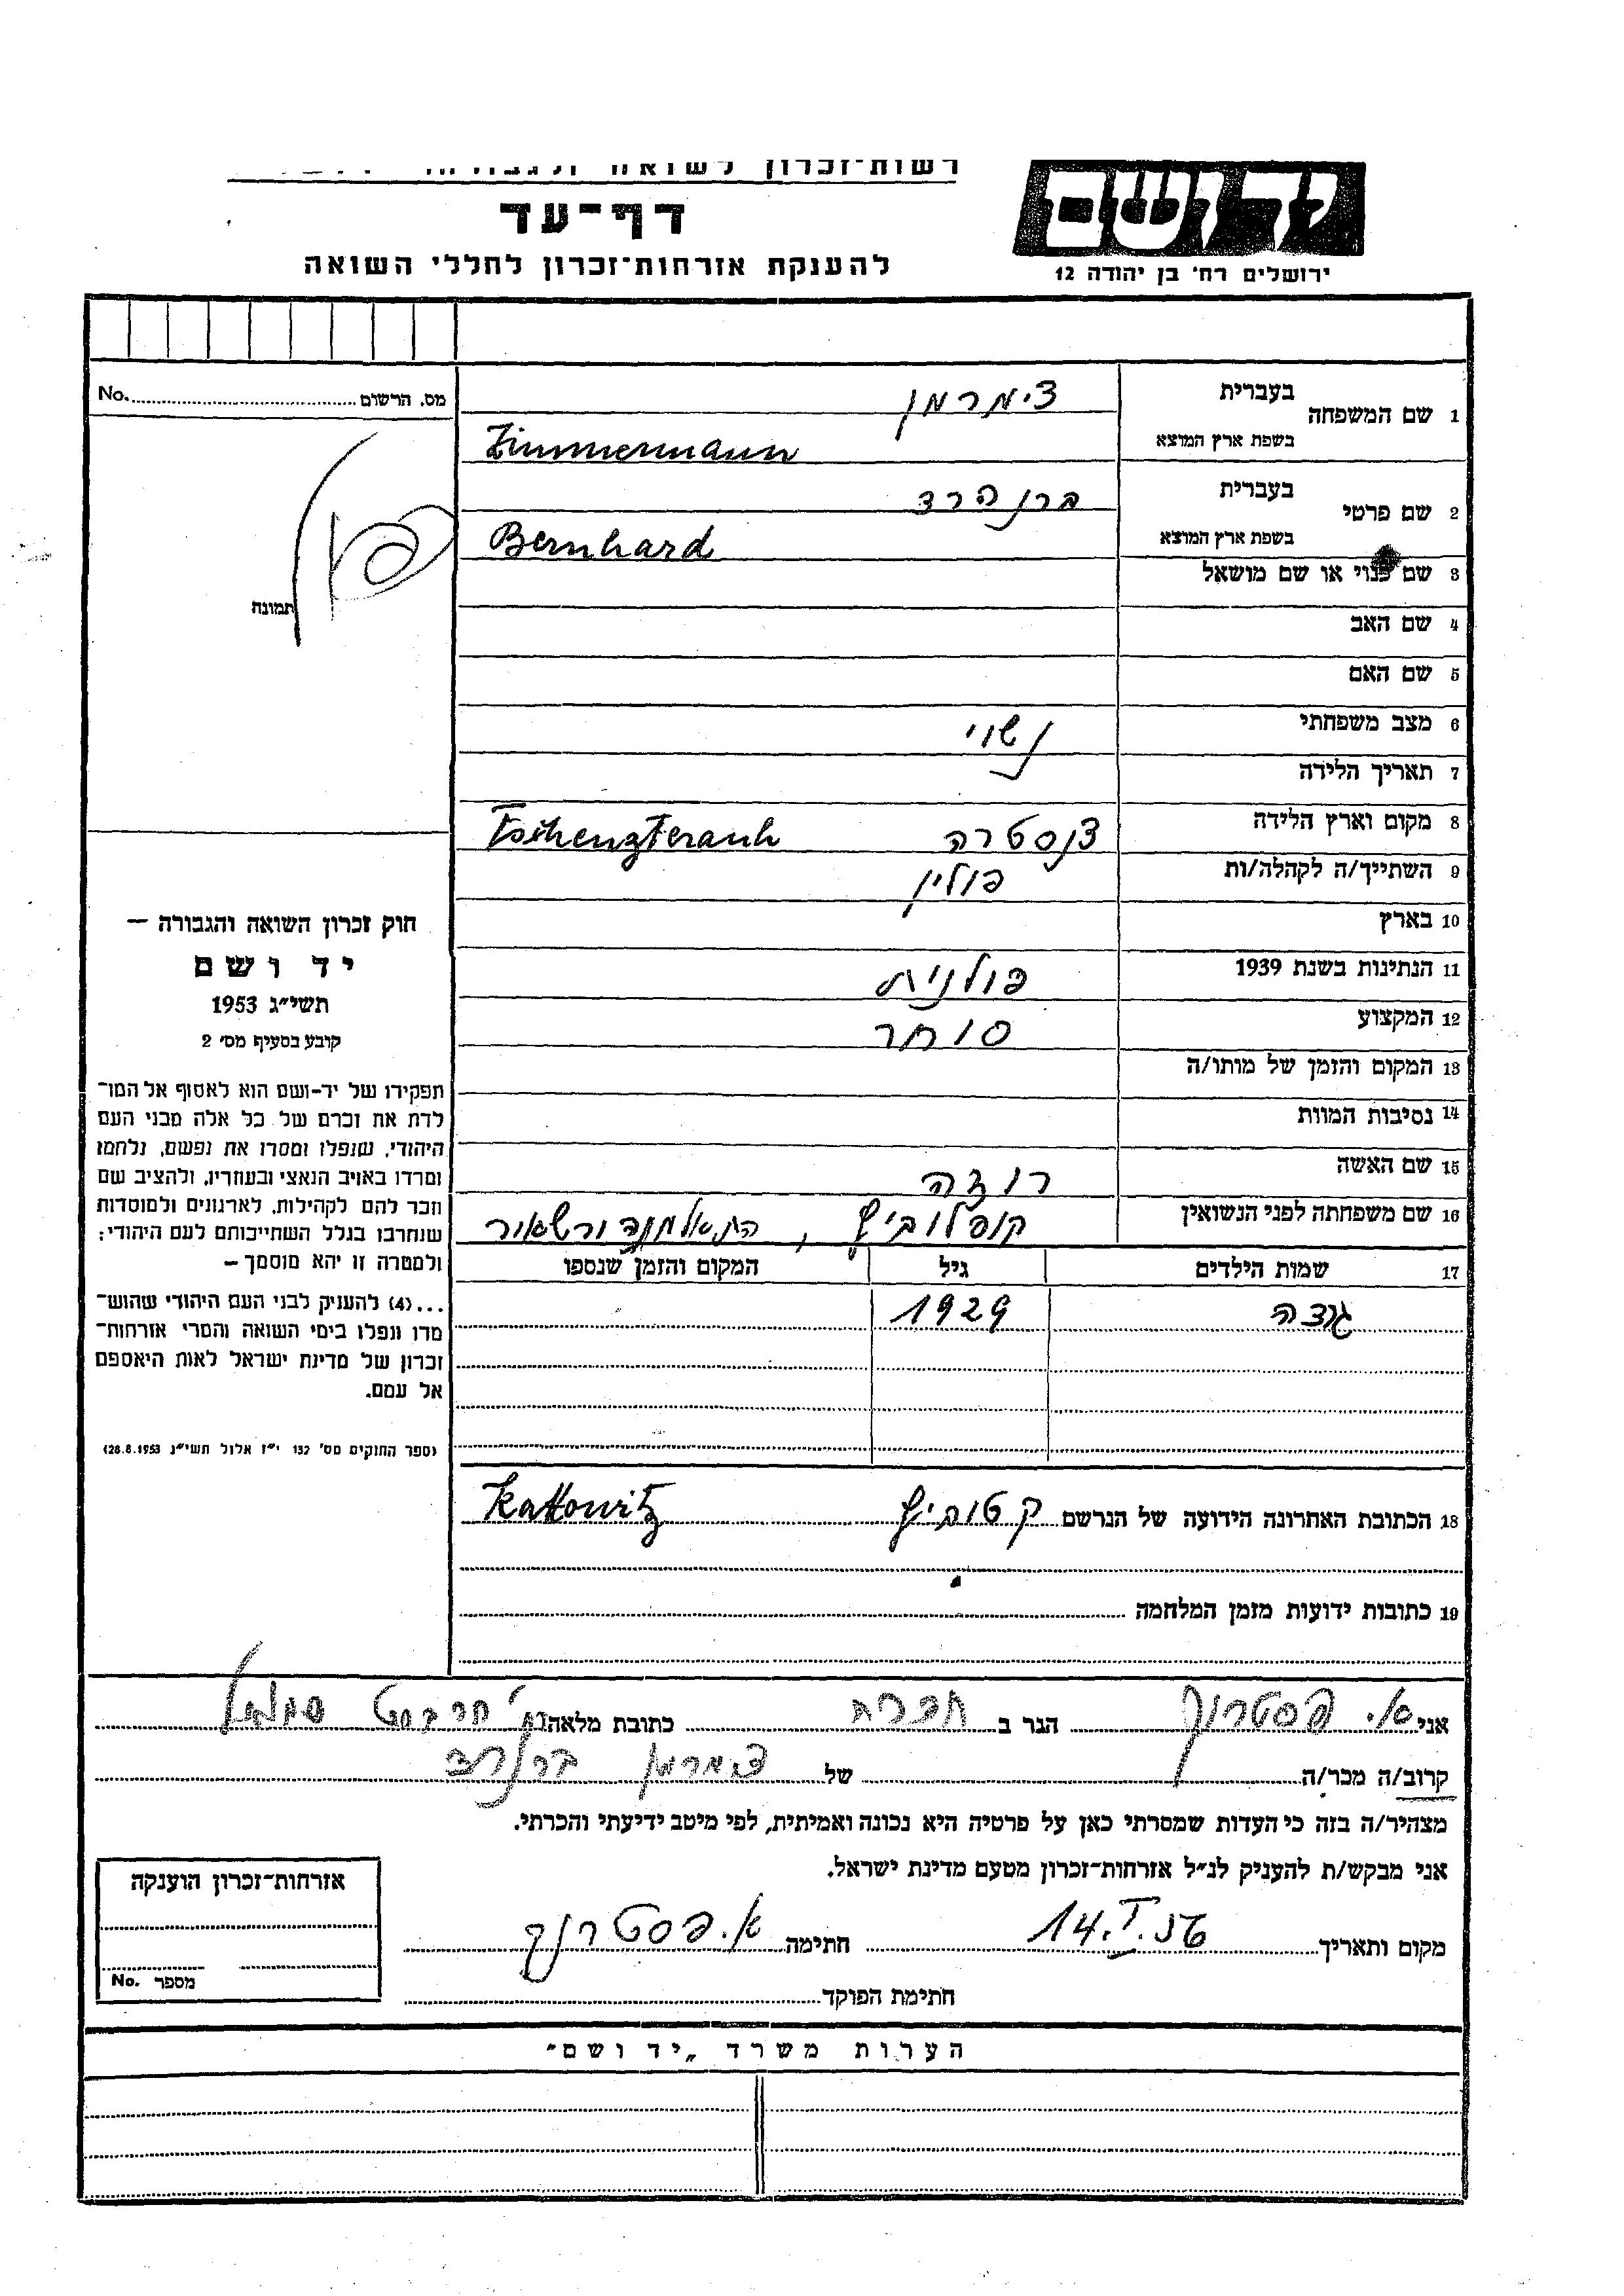 רשות־זכרון לשואה
יד ושם
דף־עד
להענקת אזרחות־זכרון לחללי השואה
ירושלים רח' בן יהודה 12
מס. הרשום No.
1 שם המשפחה בעברית צימרמן
בשפת ארץ המוצא Zimmermann
2 שם פרטי בעברית ברן הרד
בשפת ארץ המוצא Bernhard
3 שם כנוי או שם מושאל
תמונה
4 שם האב
5 שם האם
6 מצב משפחתי נשוי
7 תאריך הלידה
8 מקום וארץ הלידה
9 השתייך/ה לקהלה/ות פולין
10 בארץ
11 הנתינות בשנת 1939 פולנית
12 המקצוע סוחר
13 המקום והזמן של מותו/ה
14 נסיבות המוות
15 שם האשה רוזה
16 שם משפחתה לפני הנשואין קופלוביץ,
17 שמות הילדים גיל המקום והזמן שנספו
1929
18 הכתובת האחרונה הידועה של הנרשם קטוביץ Kattowitz
19 כתובות ידועות מזמן המלחמה
חוק זכרון השואה והגבורה –
יד ושם
תשי״ג 1953
קובע בסעיף מס' 2
תפקידו של יד-ושם הוא לאסוף אל המו־
לדת את זכרם של כל אלה מבני העם
היהודי, שנפלו ומסרו את נפשם, נלחמו
ומרדו באויב הנאצי ובעוזריו, ולהציב שם
וזכר להם לקהילות, לארגונים ולמוסדות
שנחרבו בגלל השתייכותם לעם היהודי;
ולמטרה זו יהא מוסמך –
...(4) להעניק לבני העם היהודי שהוש־
מדו ונפלו בימי השואה והמרי אזרחות־
זכרון של מדינת ישראל לאות היאספם
אל עמם.
(ספר החוקים מס' 132 י״ז אלול תשי״ג 28.8.1953)
אני א. פסטרנק הגר ב כתובת מלאה
קרוב/ה מכר/ה של צימרמן ברנרד
מצהיר/ה בזה כי העדות שמסרתי כאן על פרטיה היא נכונה ואמיתית, לפי מיטב ידיעתי והכרתי.
אני מבקש/ת להעניק לנ״ל אזרחות־זכרון מטעם מדינת ישראל.
מקום ותאריך 14.I.56 חתימה א. פסטרנק
חתימת הפוקד
אזרחות־זכרון הוענקה
מספר No.
הערות משרד „יד ושם״